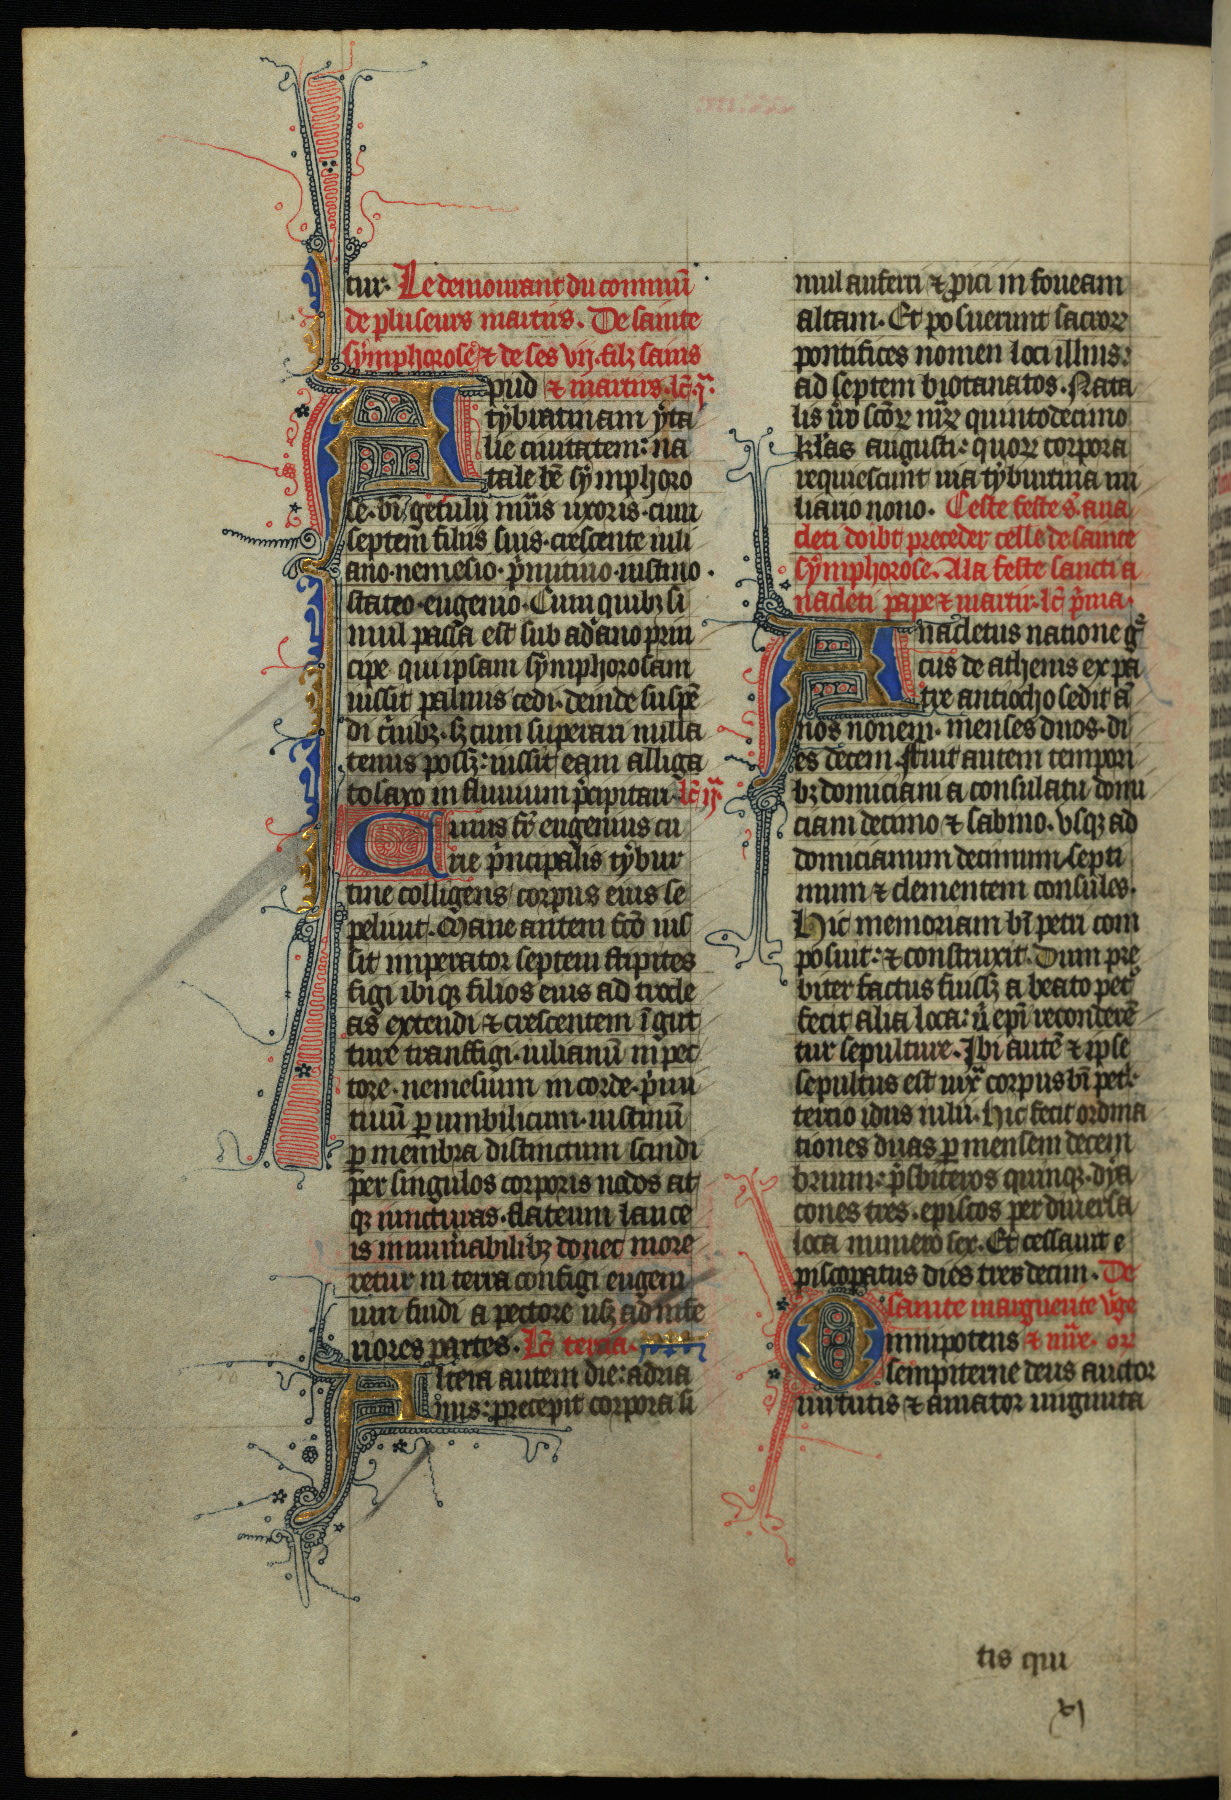 tur. Le demourant du commū
de pluseurs martirs. De sainte
symphorose ⁊ de ses vij. filz sains
Apud ⁊ martirs. lc̄. j.ᵃ
tyburtinam yta
lie ciuitatem: na
tale bē symphoro
se. bīi getulij mr̄is uxoris. cum
septem filiis suis. crescente iuli
ano. nemesio. p̄mitiuo. iustino.
stateo. eugenio. Cum quibꝫ si
mul passa est sub adriano prin
cipe qui ipsam symphorosam
iussit palmis cedi. deinde suspē
di c̄nibꝫ. sꝫ cum superari nulla
tenus possꝫ: iussit eam alliga
to saxo in fluuium p̄cipitari. lc̄ ij.ᵃ
Cuius fr̄ eugenius cu
rie p̄ncipalis tybur
tine colligens corpus eius se
peliuit. Mane autem fc̄o ius
sit imperator septem stipites
figi ibiqꝫ filios eius ad trocle
as extendi ⁊ crescentem ī gut
ture transfigi. iulianū in pec
tore. nemesium in corde. p̄mi
tiuū ꝑ umbilicum. iustinū
ꝑ membra distinctum scindi
per singulos corporis nodos at
qꝫ iuncturas. stateum lance
is innūabilibꝫ donec more
retur in terra configi eugeni
um findi a pectore usqꝫ ad infe
riores partes. Lc̄ tercia.
Altera autem die: adria
nus: precepit corpora si
mul auferri ⁊ ꝓici in foueam
altam. Et posuerunt sacroꝝ
pontifices nomen loci illius:
ad septem biotanatos. Nata
lis ūo scōꝝ mr̄ꝝ quintodecimo
kl̄as augusti: quoꝝ corpora
requiescunt uia tyburtina mi
liario nono. Ceste feste s. ana
cleti doibt preceder celle de sainte
symphorose. A la feste sancti a
nacleti pape ⁊ martir. lc̄ p̄ma.
Anacletus natione gͤ
cus de athenis ex pa
tre antiocho sedit ā
nos nouem. menses duos. di
es decem. Fuit autem tempori
bꝫ domiciani a consulatu domi
ciani decimo ⁊ sabino. vsqꝫ ad
domicianum decimum septi
mum ⁊ clementem consules.
Hic memoriam bī petri com
posuit: ⁊ construxit. Dum pre
biter factus fuissꝫ a beato petͦ
fecit alia loca: ū epī reconderē
tur sepulture. Ibi autē ⁊ ipse
sepultus est iuxͣ corpus bī petͥ.
tercio idus iulii. Hic fecit ordina
tiones duas ꝑ mensem decem
brium: p̄sbiteros quinqꝫ. dya
cones tres. episcos per diuersa
loca numero sex. Et cessauit e
piscopatus dies tresdecim. De
sainte marguerite vͥge
Omnipotens ⁊ mr̄e. or
sempiterne deus auctor
uirtutis ⁊ amator uirginita
tis qui
xj